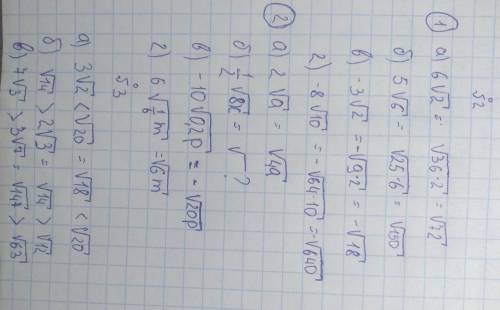 №2
① а) 6√2 = √36·2 = √72
б) 5√6 = √25·6 = √150
в) -3√2 = -√9·2 = -√18
г) -8√10 = -√64·10 = √640
② а) 2√a = √4a
б) 1/2 √8x = √ ?
в) -10√0,2p = -√20p
г) 6√1/6 m = √6m
№3
а) 3√2 < √20 = √18 < √20
б) √14 > 2√3 = √14 > √12
в) 7√3 > 3√7 = √147 > √63